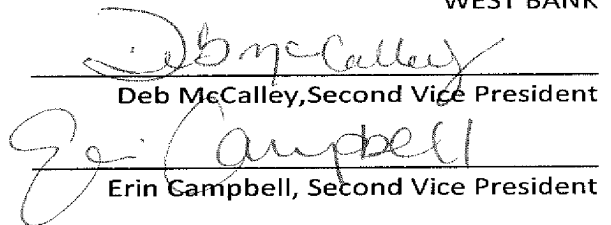 WEST BANK
Deb McCalley
Deb McCalley,Second Vice President
Erin Campbell
Erin Campbell, Second Vice President